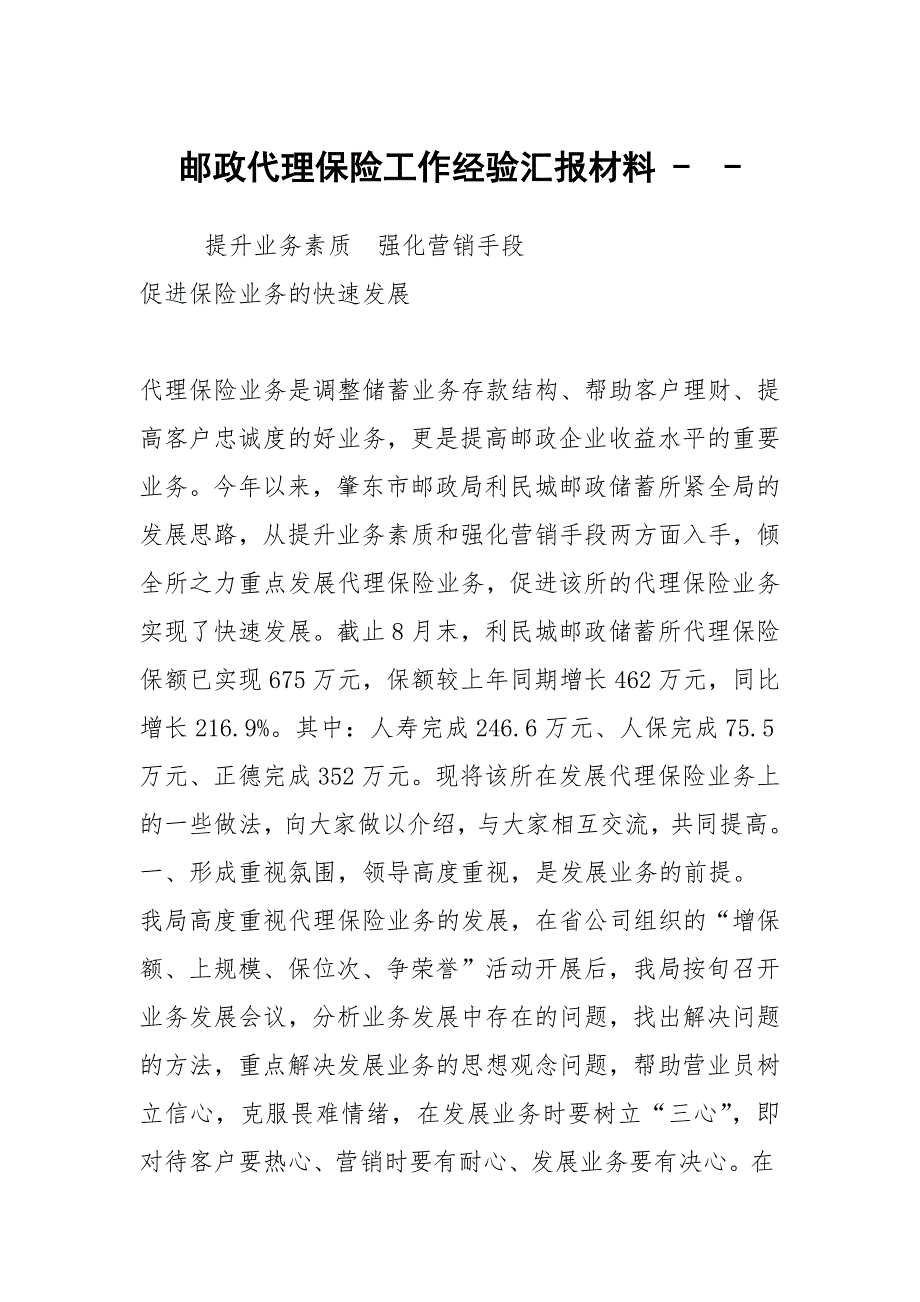 邮政代理保险工作经验汇报材料 - -
提升业务素质　强化营销手段
促进保险业务的快速发展
代理保险业务是调整储蓄业务存款结构、帮助客户理财、提
高客户忠诚度的好业务，更是提高邮政企业收益水平的重要
业务。今年以来，肇东市邮政局利民城邮政储蓄所紧全局的
发展思路，从提升业务素质和强化营销手段两方面入手，倾
全所之力重点发展代理保险业务，促进该所的代理保险业务
实现了快速发展。截止 8 月末，利民城邮政储蓄所代理保险
保额已实现 675 万元，保额较上年同期增长 462 万元，同比
增长 216.9%。其中：人寿完成 246.6 万元、人保完成 75.5
万元、正德完成 352 万元。现将该所在发展代理保险业务上
的一些做法，向大家做以介绍，与大家相互交流，共同提高。
一、形成重视氛围，领导高度重视，是发展业务的前提。
我局高度重视代理保险业务的发展，在省公司组织的“增保
额、上规模、保位次、争荣誉”活动开展后，我局按旬召开
业务发展会议，分析业务发展中存在的问题，找出解决问题
的方法，重点解决发展业务的思想观念问题，帮助营业员树
立信心，克服畏难情绪，在发展业务时要树立“三心”，即
对待客户要热心、营销时要有耐心、发展业务要有决心。在